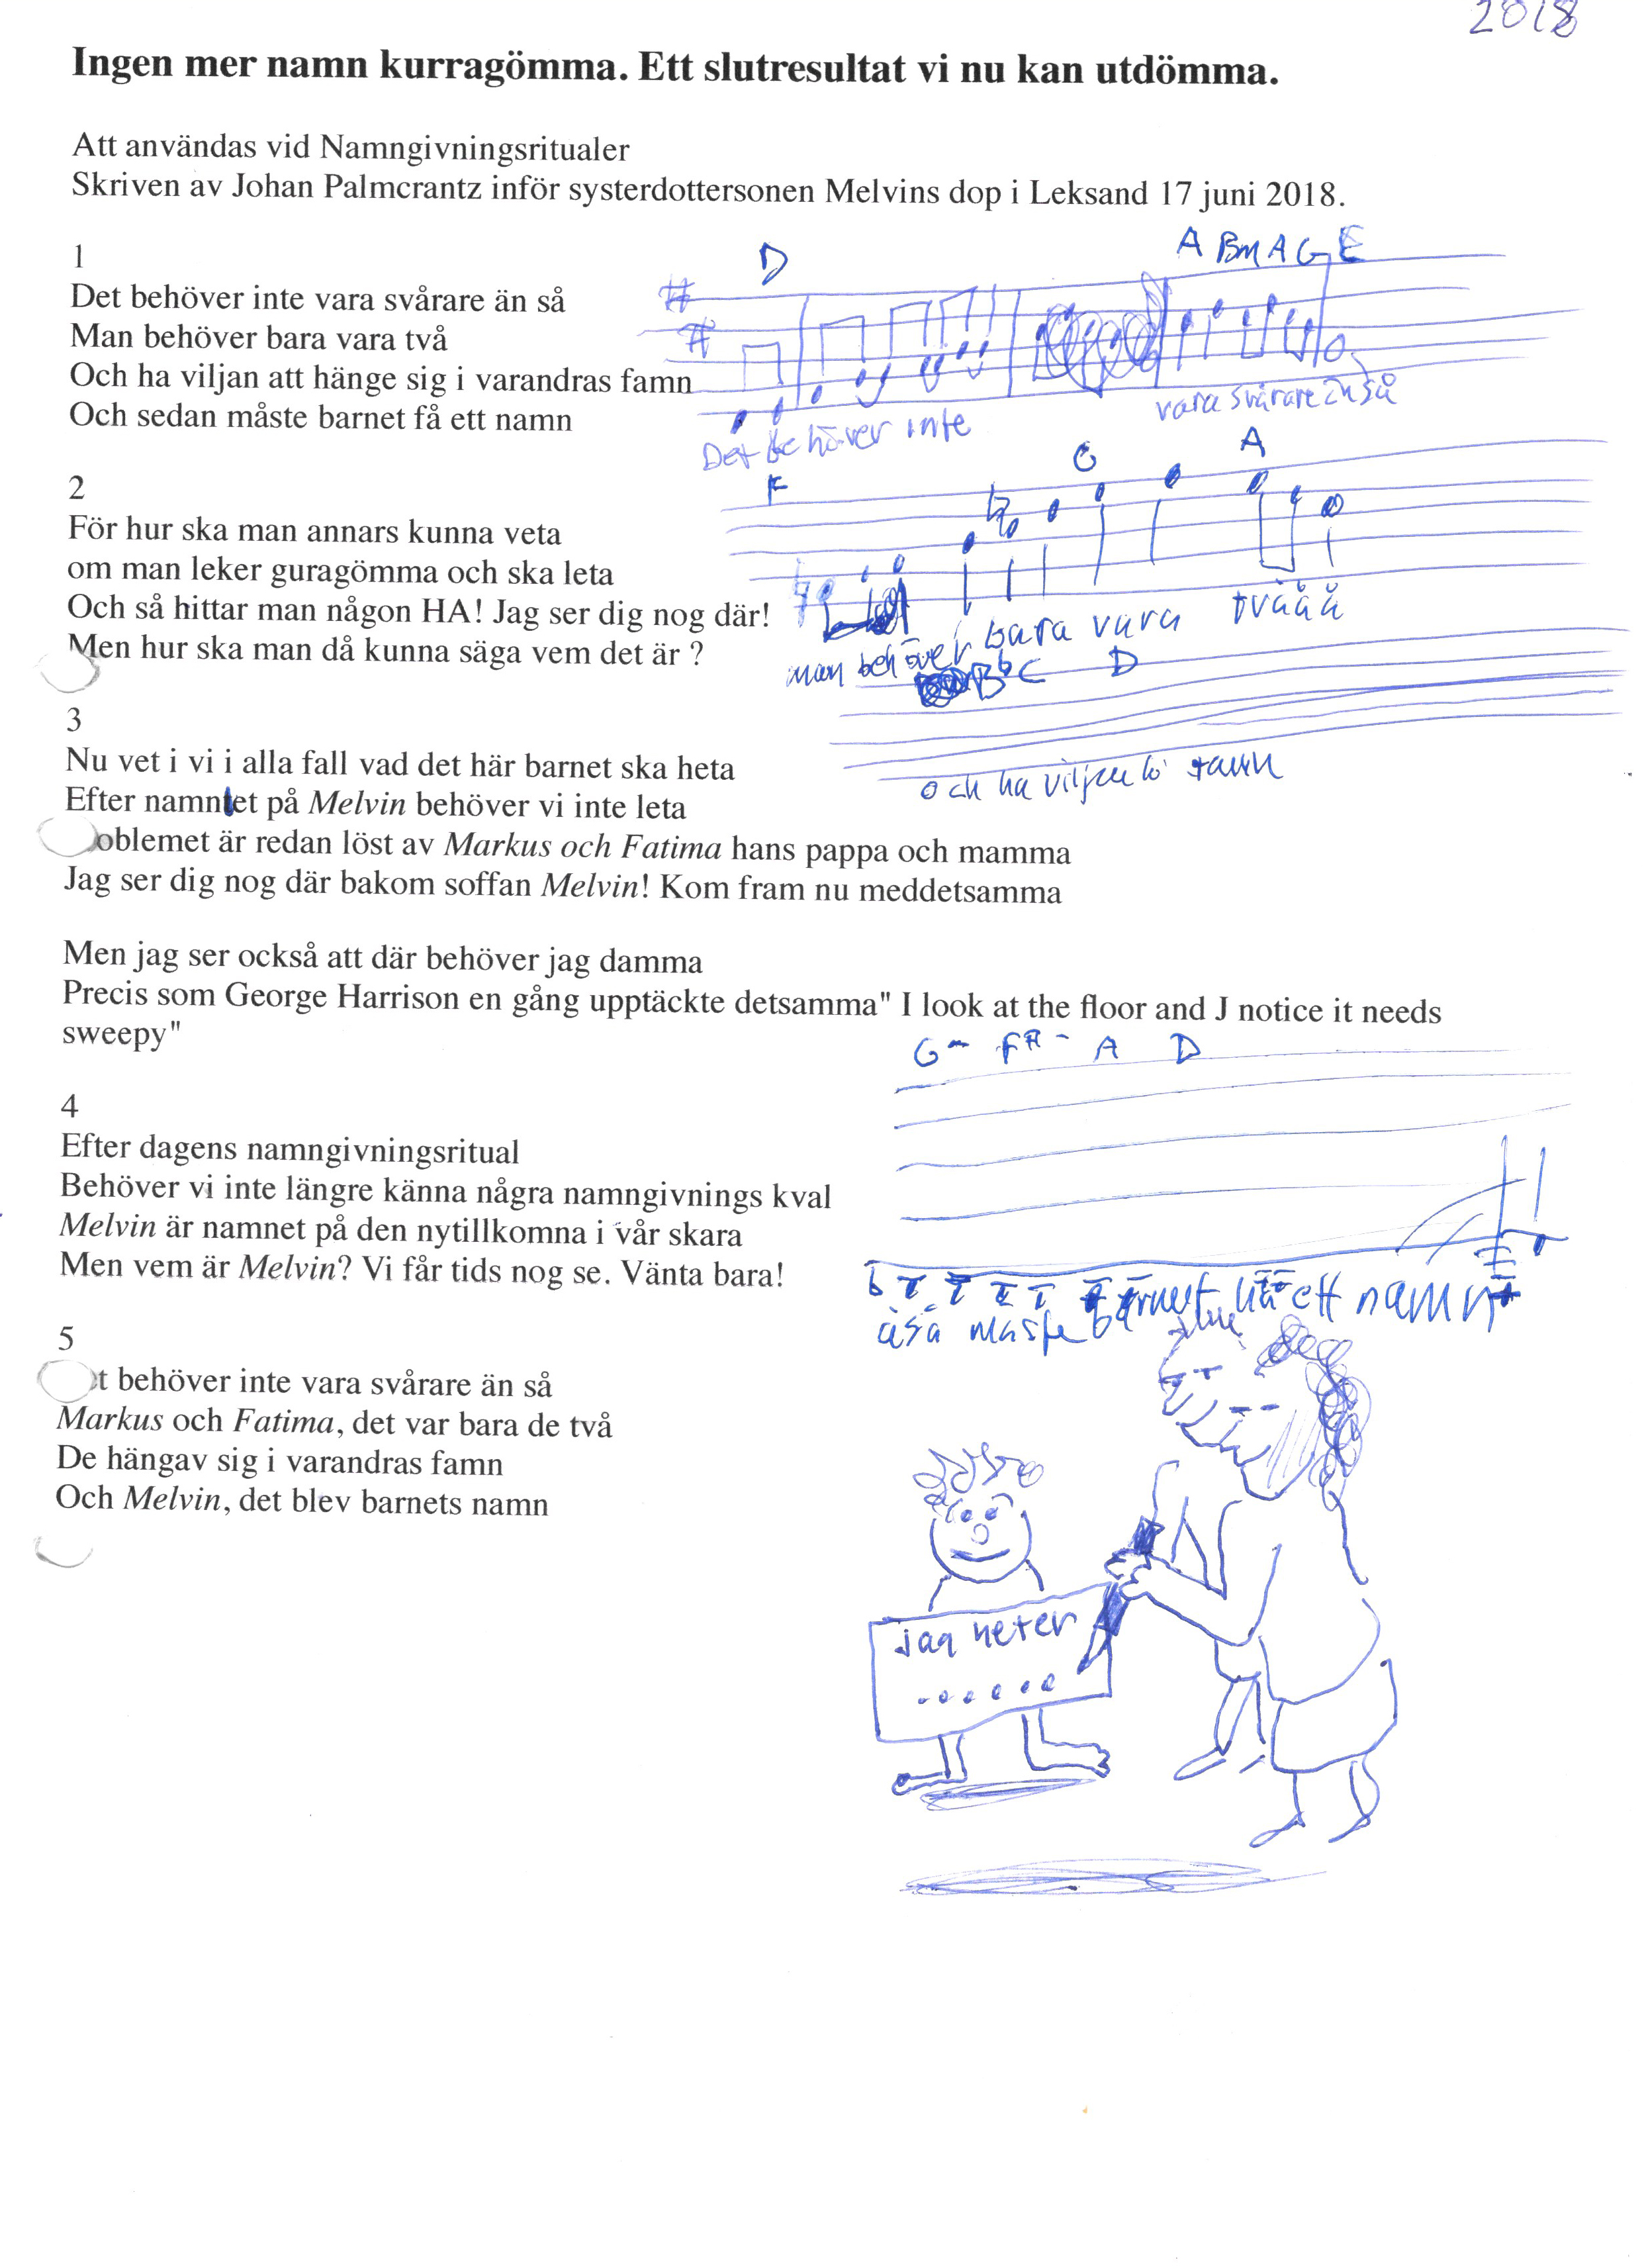 2018
Ingen mer namn kurragömma. Ett slutresultat vi nu kan utdömma.
Att användas vid Namngivningsritualer
Skriven av Johan Palmcrantz inför systerdottersonen Melvins dop i Leksand 17 juni 2018.
1
Det behöver inte vara svårare än så
Man behöver bara vara två
Och ha viljan att hänge sig i varandras famn
Och sedan måste barnet få ett namn
D
A Bm A G E
Det behöver inte
vara svårare än så
2
För hur ska man annars kunna veta
om man leker guragömma och ska leta
Och så hittar man någon HA! Jag ser dig nog där!
Men hur ska man då kunna säga vem det är ?
F
A
man behöver bara vara tvååå
Bb C D
och ha viljan
famn
3
Nu vet i vi i alla fall vad det här barnet ska heta
Efter namntet på Melvin behöver vi inte leta
oblemet är redan löst av Markus och Fatima hans pappa och mamma
Jag ser dig nog där bakom soffan Melvin! Kom fram nu meddetsamma
Men jag ser också att där behöver jag damma
Precis som George Harrison en gång upptäckte detsamma" I look at the floor and J notice it needs
sweepy"
G- F#- A D
4
Efter dagens namngivningsritual
Behöver vi inte längre känna några namngivnings kval
Melvin är namnet på den nytillkomna i vår skara
Men vem är Melvin? Vi får tids nog se. Vänta bara!
måste barnet
ett namn
5
t behöver inte vara svårare än så
Markus och Fatima, det var bara de två
De hängav sig i varandras famn
Och Melvin, det blev barnets namn
jag heter
.......